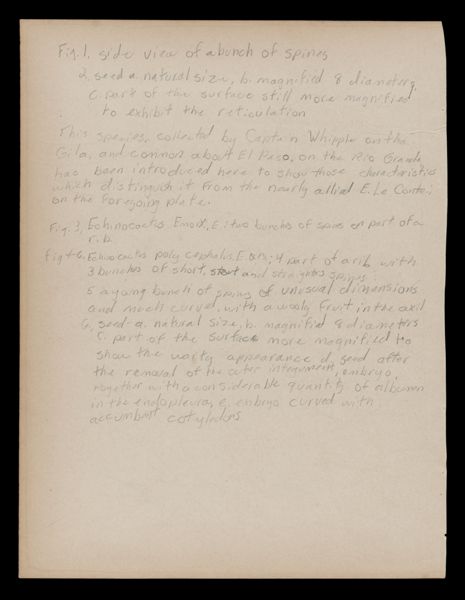 Fig. 1, side view of a bunch of spines
2. seed a. natural size, b. magnified 8 diameters,
c. part of the surface still more magnified
to exhibit the reticulation
This species, collected by Captain Whipple on the
Gila, and common about El Paso, on the Rio Grande
has been introduced here to show those characteristics
which distinguish it from the nearly allied E. Le Contei
on the foregoing plate.
Fig. 3, Echinocactus Emoryi, E. two bunches of spines on part of a
rib
Fig 4-6, Echinocactus polycephalus, E. &; 4 part of a rib with
3 bunches of short, stout and straighter spines
5 a young bunch of spines of unusual dimensions
and much curved, with a wooly fruit in the axil
6, seed a. natural size, b. magnified 8 diameters
c. part of the surface more magnified to
show the warty appearance d, seed after
the removal of the outer integument, embryo,
together with a considerable quantity of albumen
in the endopleura, e, embryo curved with
accumbent cotyledons